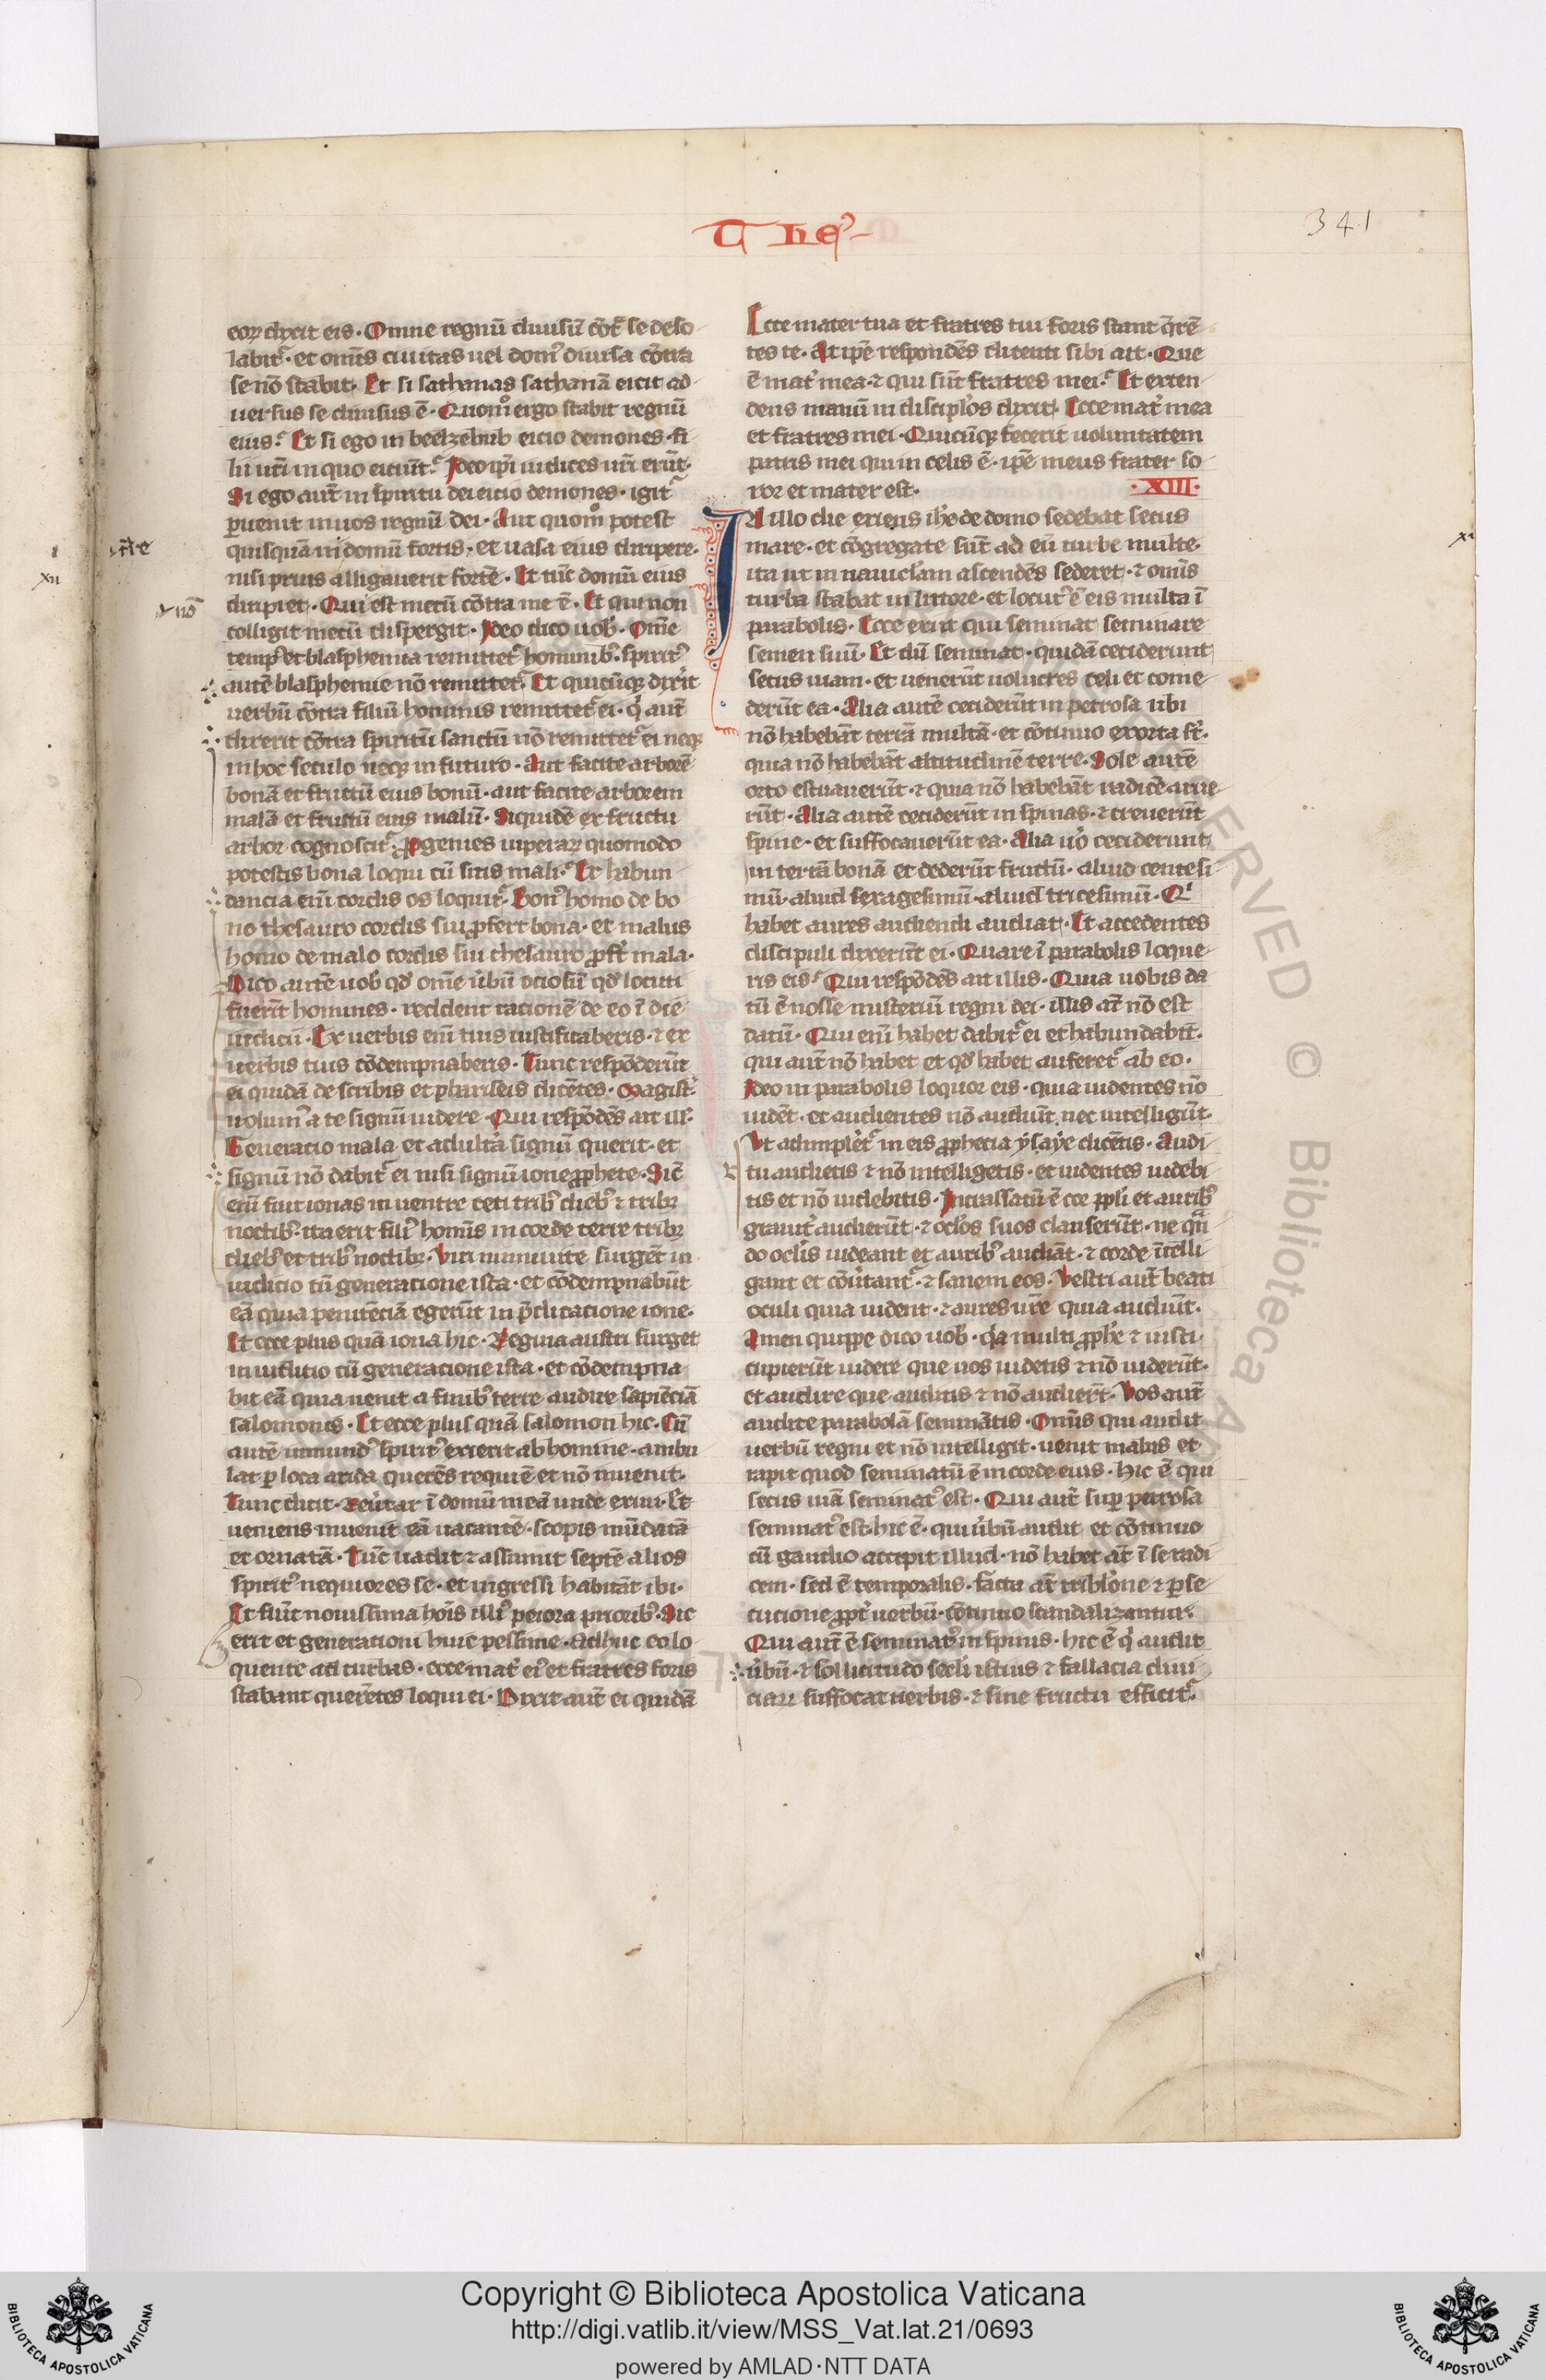 T heꝰ
341
eoꝝ dixit eis · Omne regnū diuisū cōt᷑ se deso
labit᷑ · et om̄is ciuitas uel domꝰ diuisa cōtra
se nō stabit · Et si sathanas sathanā eicit ad
uersus se diuisus ē · Quom̊ ergo stabit regnū
eius · Et si ego in beelzebub eicio demones · fi
lii ur̄i in quo eiciūt · Ideo ip̄i iudices ur̄i erūt ·
Si ego aut̄ in spiritu dei eicio demones · igit᷑
ꝑuenit in uos regnū dei · Aut quom̊ potest
quisquā in domū fortis · et uasa eius diripere ·
nisi prius alligauerit fortē · Et tūc domū eius
diripiet · Qui est mecū cōtra me ē · Et qui non
colligit mecū dispergit · Ideo dico uob̓ · Om̄e
temp̄ et blasphemia remittet᷑ hominibꝰ · spiritꝰ
autē blasphemie nō remittet᷑ · Et quicūqꝫ dixerit
uerbū cōtra filiū hominis remittet᷑ ei · q̓ aut̄
dixerit cōtra spiritū sanctū nō remittet᷑ ei neqꝫ
in hoc seculo neqꝫ in futuro · Aut facite arborē
bonā et fructū eius bonū · aut facite arborem
malā et fructū eius malū · Siquidē ex fructu
arbor cognoscit᷑ · Ꝓgenies uiperaꝝ quomodo
potestis bona loqui cū sitis mali · Ex habun
dancia eni̅ cordis os loquit᷑ · Bonꝰ homo de bo
no thesauro cordis sui ꝓfert bona · et malus
homo de malo cordis sui thesauro ꝓfert mala ·
Dico autē uob̓ qd̓ om̄e u̓bū ociosū qd̓ locuti
fuerīt homines · reddent racionē de eo ī die
iudicii · Ex uerbis eni̅ tuis iustificaberis · ⁊ ex
uerbis tuis cōdempnaberis · Tunc respōderūt
ei quidā de scribis et phariseis dicētes · Magist̓
uolumꝰ a te signū uidere · Qui respōdēs ait ill̓ ·
Generacio mala · et adultera signū querit · et
signū nō dabit᷑ ei nisi signū ione ꝓphete · Sic̄
eni̅ fuit ionas in uentre ceti tribꝰ diebꝰ ⁊ tribꝫ
noctibꝰ · ita erit filiꝰ homīs in corde terre tribꝫ
diebꝰ et tribꝰ noctibꝫ · Viri niniuite surgēt in
iudicio cū generacione ista · et cōdempnabūt
eā quia penitēciā egerūt in p̄dicacione ione ·
Et ecce plus quā iona hic · Regina austri surget
in iudicio cū generacione ista · et cōdempna
bit eā quia uenit a finibꝰ terre audire sapiēciā
salomonis · Et ecce plus quā salomon hic · Cū
autē inmundꝰ spiritꝰ exierit ab homine · ambu
lat ꝑ loca arida querēs requiē et nō inuenit ·
Tunc dicit · Reu̓tar ī domū meā unde exiui · Et
ueniens inuenit eā uacantē · scopis mūdatā
et ornatā · Tūc uadit ⁊ assumit septē alios
spiritꝰ nequiores se · et ingressi habitāt ibi ·
Et fiūt nouissima hōis illiꝰ peiora prioribꝰ · Sic
erit et generationi huic pessime · Adhuc eo lo
quente ad turbas · ecce mat̓ eiꝰ et fratres foris
stabant querētes loqui ei · Dixit aut̄ ei quidā
Ecce mater tua et fratres tui foris stant q̄rē
tes te · At ip̄e respondēs dicenti sibi ait · Que
ē mat̓ mea · ⁊ qui sūt fratres mei · Et exten
dens manū in discipl̓os dixit · Ecce mat̓ mea
et fratres mei · Quicūqꝫ fecerit uoluntatem
patris mei qui in celis ē · ip̄e meus frater so
ror et mater est ·
· XIII ·
In illo die exiens ih̄s de domo sedebat secus
mare · et cōgregate sūt ad eū turbe multe ·
ita ut in nauicl̓am ascendēs sederet · ⁊ om̄is
turba stabat in littore · et locutꝰ ē eis multa ī
parabolis · Ecce exiit qui seminat seminare
semen suū · Et dū seminat · quidā ceciderunt
secus uiam · et uenerūt uolucres celi et come
derūt ea · Alia autē ceciderūt in petrosa ubi
nō habebāt terrā multā · et cōtinuo exorta sȓ ·
quia nō habebāt altitudinē terre · Sole autē
orto estuauerūt · ⁊ quia nō habebāt radicē arue
rūt · Alia autē ceciderūt in spinas · ⁊ creuerūt
spine · et suffocauerūt ea · Alia u̓o ceciderunt
in terrā bonā et dederūt fructū · aliud centesi
mū · aliud sexagesimū · aliud tricesimū · Qi
habet aures audiendi audiat · Et accedentes
discipuli dixerūt ei · Quare ī parabolis loque
ris eis · Qui respōdēs ait illis · Quia uobis da
tū ē nosse misteriū regni dei · illis at̄ nō est
datū · Qui eni̅ habet dabit᷑ ei et habundabit ·
qui aut̄ nō habet et qd̓ habet auferet᷑ ab eo ·
Ideo in parabolis loquor eis · quia uidentes nō
uidēt · et audientes nō audiūt nec intelligūt ·
Vt adimplet᷑ in eis ꝓphecia ysaye dicētis · Audi
tu audietis ⁊ nō intelligetis · et uidentes uidebi
tis et nō uidebitis · Incrassatū ē cor ppl̓i et auribꝰ
grauit̓ audierūt · ⁊ ocl̓os suos clauserūt · ne qn̄
do ocl̓is uideant et auribꝰ audiāt · ⁊ corde ītelli
gant et cōu̓tant᷑ · ⁊ sanem eos · Vestri aut̄ beati
oculi quia uident · ⁊ aures ur̄e quia audiūt ·
Amen quippe dico uob̓ · q̓a multi ꝓph̄e ⁊ iusti
cupierūt uidere que uos uidetis ⁊ nō uiderūt ·
et audire que auditis ⁊ nō audierūt · Vos aut̄
audite parabolā seminātis · Om̄is qui audit
uerbū regni et nō intelligit · uenit malus et
rapit quod seminatū ē in corde eius · hic ē qui
secus uiā seminatꝰ est · Qui aut̄ sup̱ petrosa
seminatꝰ est · hic ē · qui u̓bū audit et cōtinuo
cū gaudio accipit illud · nō habet at̄ ī se radi
cem · sed ē temporalis · facta at̄ tribl̓one ⁊ ꝑse
cucione ꝓpt̓ uerbū · cōtinuo scandalizantur ·
Qui aut̄ ē seminatꝰ in spinis · hic ē q̓ audit
u̓bū · ⁊ sollicitudo sec̄li istius ⁊ fallacia diui
ciaꝝ suffocat uerbis · ⁊ sine fructu efficit᷑ ·
xii
nō
Copyright © Biblioteca Apostolica Vaticana
http://digi.vatlib.it/view/MSS_Vat.lat.21/0693
powered by AMLAD·NTT DATA
BIBLIOTECA APOSTOLICA VATICANA
BIBLIOTECA APOSTOLICA VATICANA